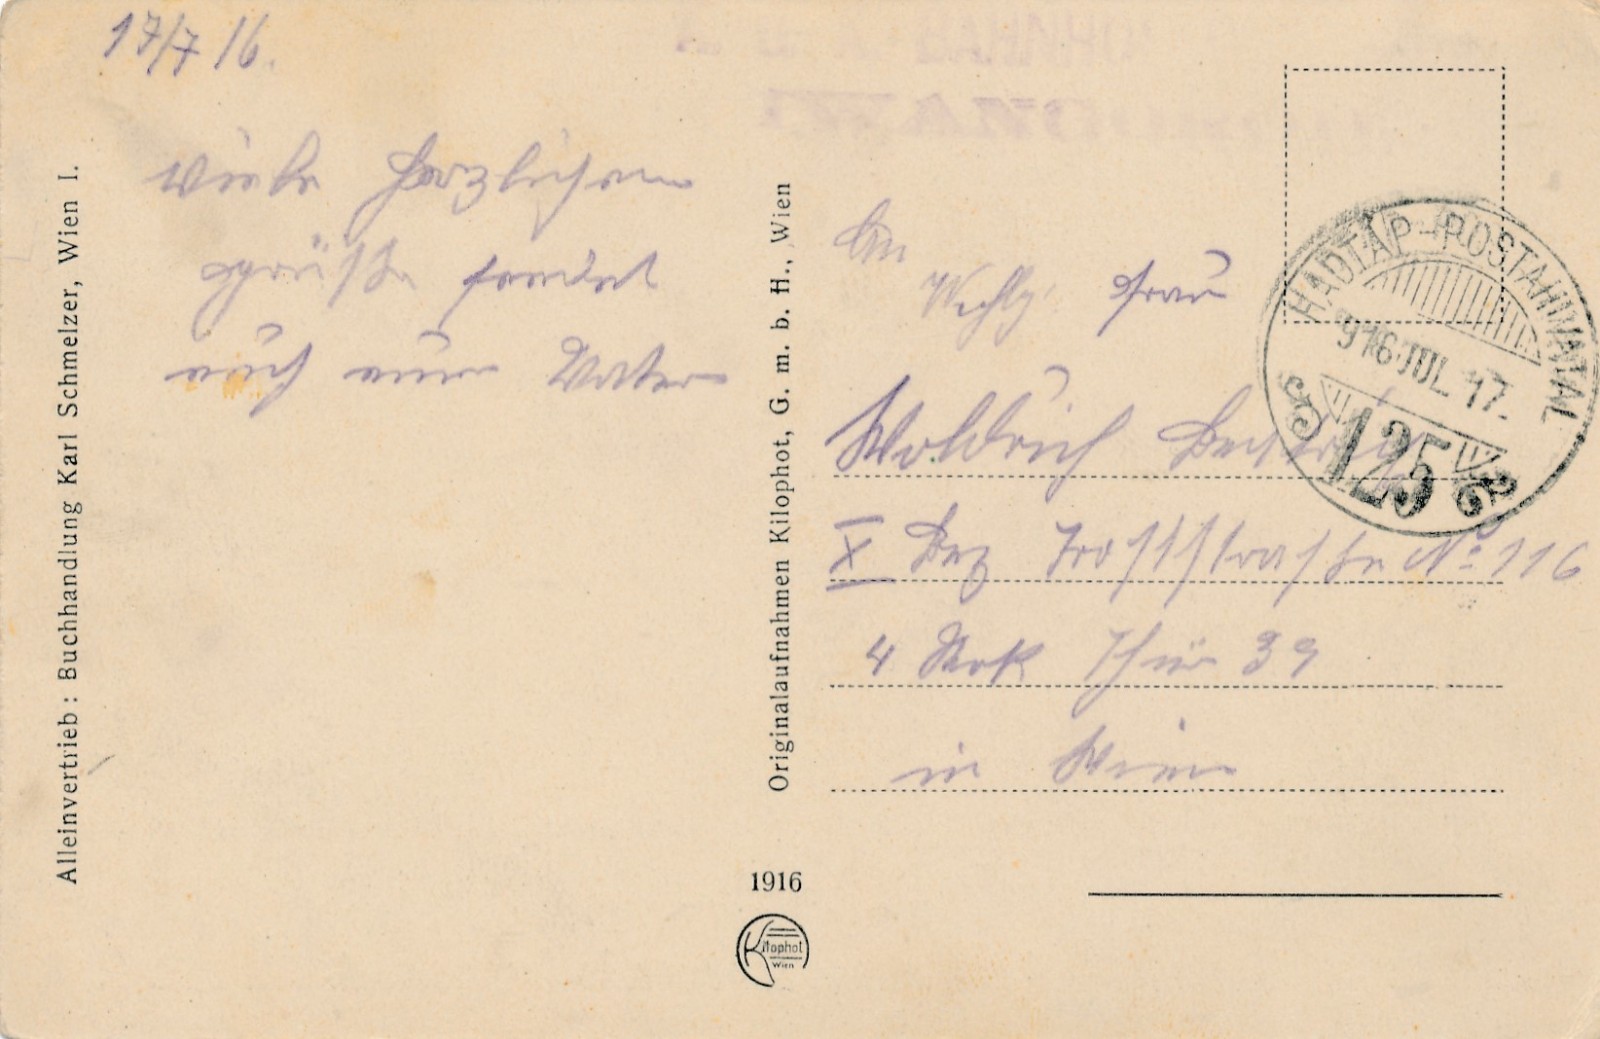 17/7 16.
Viele herzlichen
grüße sendet
euch euer Vater
An
Frau
Woldrich
X Bez Troststraße No 116
4 Stok Thür 39
in Wien
HADTÁP-POSTAHIVATAL
916 JUL. 17.
125
Alleinvertrieb: Buchhandlung Karl Schmelzer, Wien I.
Originalaufnahmen Kilophot, G. m. b. H., Wien
1916
Kilophot
Wien